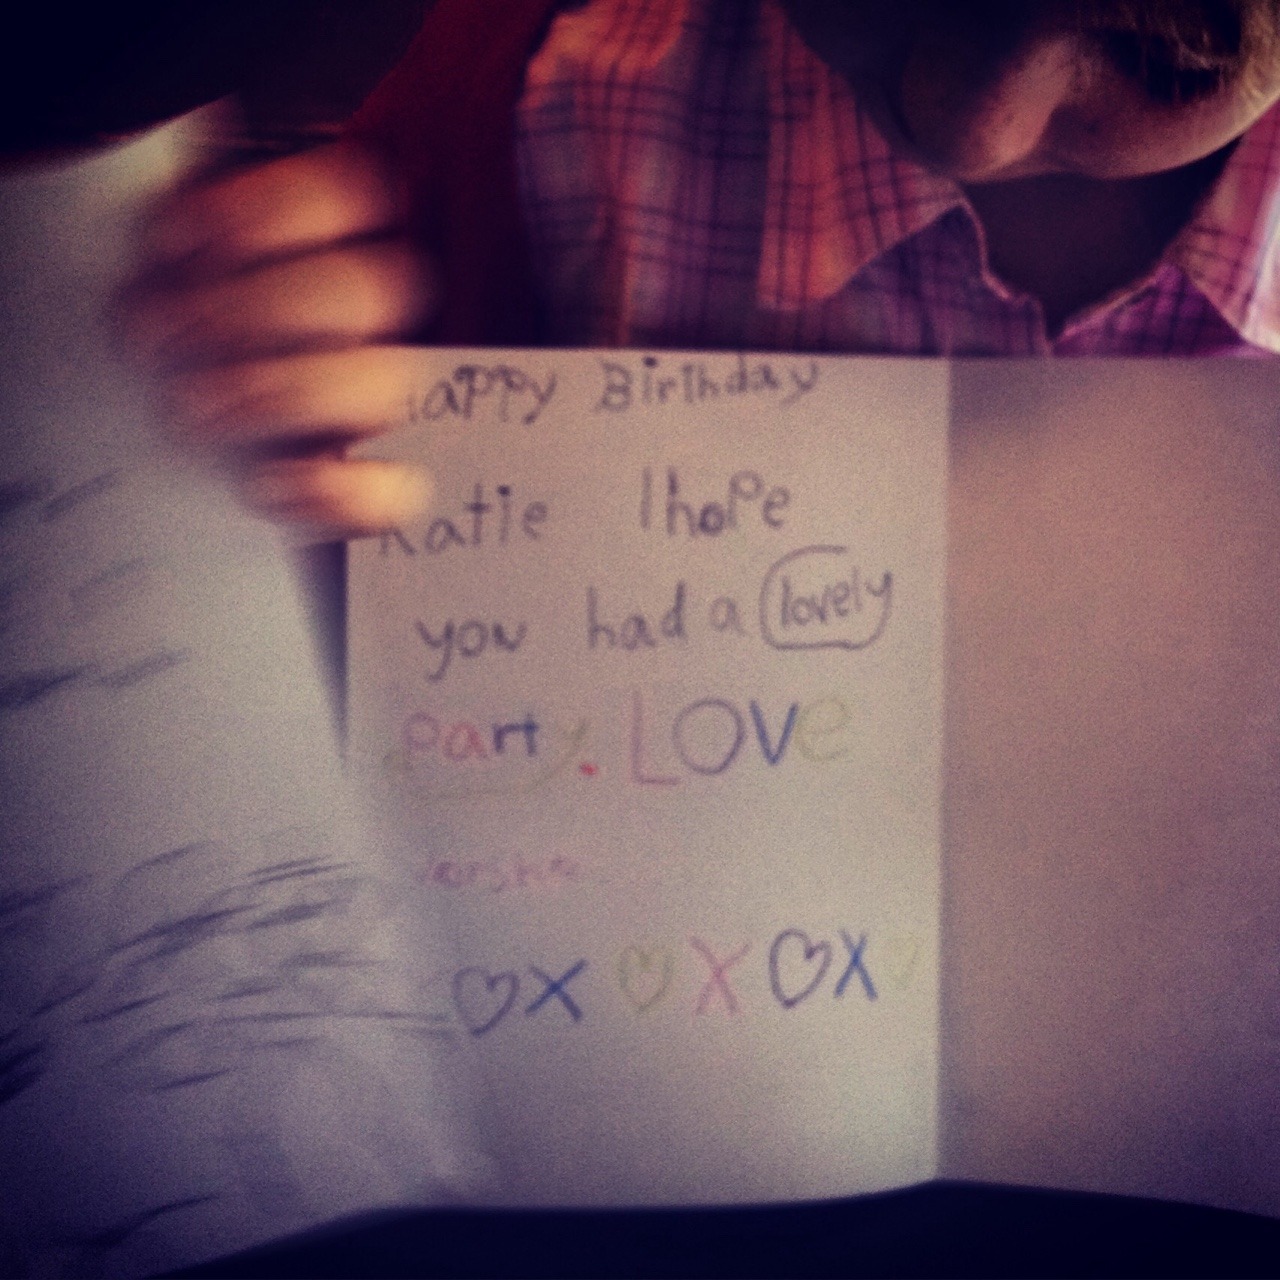 Happy Birthday
Katie I hope
you had a lovely
party. LOVE
♡X ♡X ♡X♡